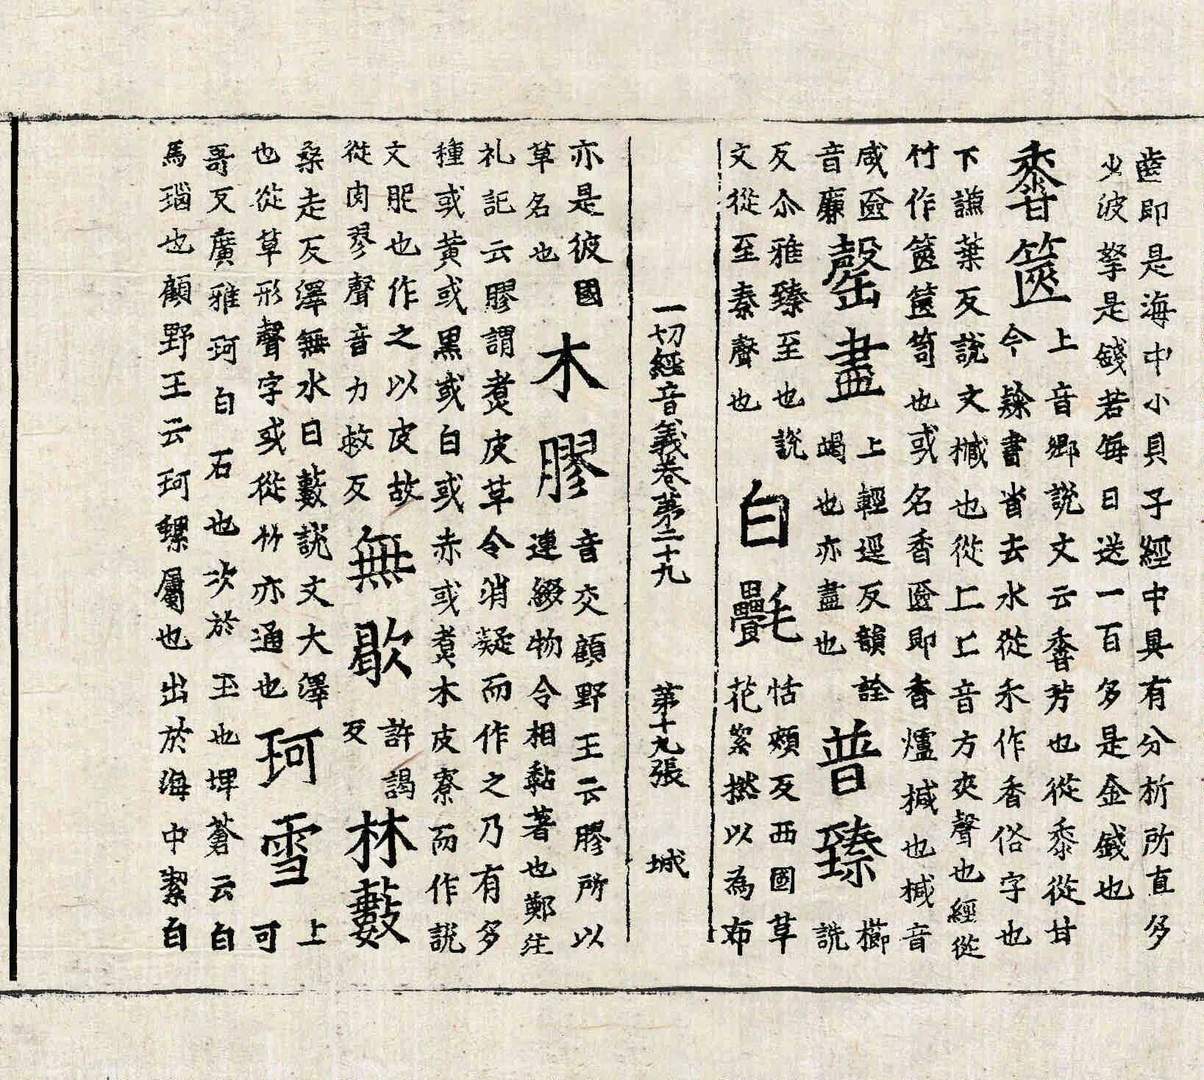 齒即是海中小貝子經中具有分析所直多
少波拏是錢若每日送一百多是金錢也
香篋
上音鄉說文云香芳也從黍從甘
今隸書省去水從禾作香俗字也
下謙葉反說文椷也從匚匚音方夾聲也經從
竹作篋篋笥也或名香匳即香爐椷也椷音
咸匳
音廉
罄盡
上輕逕反韻詮
竭也亦盡也
普臻
櫛
說
反尒雅臻至也說
文從至秦聲也
白㲲
恬頰反西國草
花絮撚以為布
一切經音義卷第二十九 第十九張 城
亦是彼國
草名也
木膠
音交顧野王云膠所以
連綴物令相黏著也鄭注
礼記云膠謂煑皮草令消凝而作之乃有多
種或黄或黒或白或赤或煑木皮寮而作說
文肥也作之以皮故
從肉翏聲音力救反
無歇
許謁
反
林藪
桒走反澤無水曰藪說文大澤
也從草形聲字或從竹亦通也
珂雪
上
可
哥反廣雅珂白石也次於玉也埤蒼云白
馬瑙也顧野王云珂螺屬也出於海中絜白